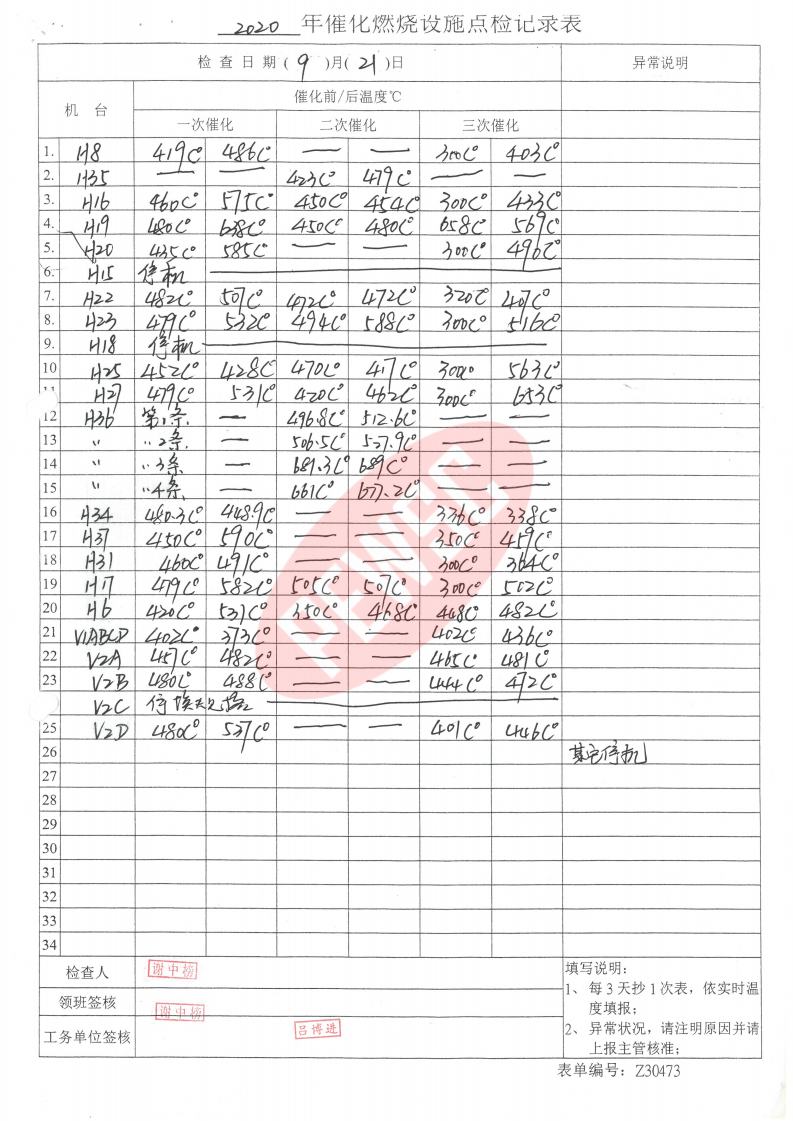 2020 年催化燃烧设施点检记录表
检查日期( 9 )月( 21 )日 异常说明
机 台 催化前/后温度℃
一次催化 二次催化 三次催化
1. H8 419C° 486C° — — 300C° 403C°
2. H35 — — 423C° 479C° — —
3. H16 460C° 575C° 450C° 454C° 300C° 433C°
4. H19 480C° 638C° 450C° 480C° 658C° 569C°
5. H20 435C° 585C° — — 300C° 496C°
6. H15 停机
7. H22 482C° 507C° 472C° 472C° 320C 407C°
8. H23 479C° 532C° 494C° 588C° 300C° 516C°
9. H18 停机
10 H25 452C° 428C° 470C° 417C° 300C 563C°
11 H27 479C° 531C° 420C° 462C° 300C° 653C°
12 H36 第1条 — 496.8C° 512.6C° — —
13 " "2条 — 506.5C° 527.9C° — —
14 " "3条 — 681.3C° 689C° — —
15 " "4条 — 661C° 677.2C° — —
16 H34 480.3C° 448.9C° — — 336C° 338C°
17 H37 450C° 590C° — — 350C° 459C°
18 H31 460C° 491C° — — 300C° 364C°
19 H17 479C° 582C° 505C° 507C° 300C° 502C°
20 H6 420C° 531C° 350C° 468C° 448C° 482C°
21 V1ABCD 402C° 373C° — — 402C° 436C°
22 V2A 457C° 482C° — — 465C° 481C°
23 V2B 480C° 488C° — — 444C° 472C°
V2C 停
25 V2D 480C° 537C° — — 401C° 446C°
26 其它停机
27
28
29
30
31
32
33
34
检查人 谢中榜
领班签核 谢中榜
工务单位签核 吕博进
填写说明:
1、每3天抄1次表，依实时温
度填报;
2、异常状况，请注明原因并请
上报主管核准;
表单编号：Z30473
PEWSC